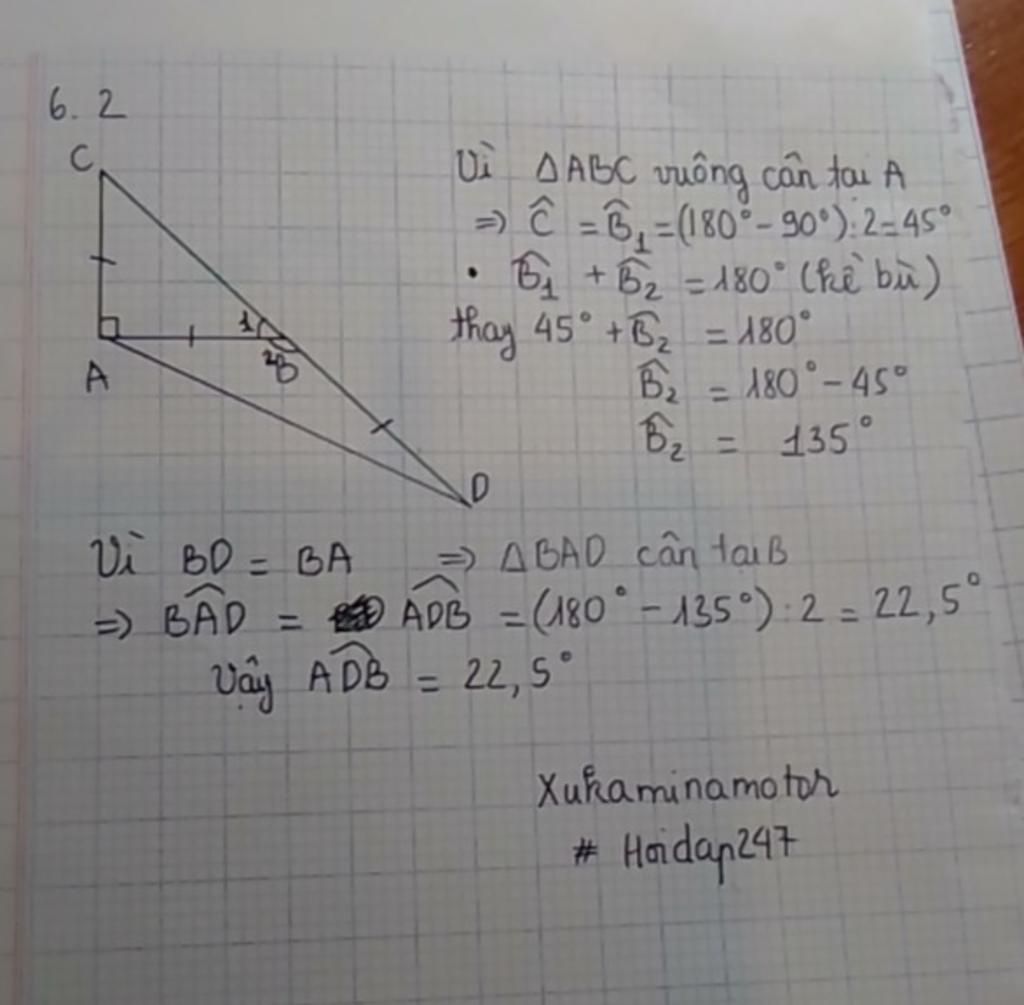 6.2
C
A
1
2
B
D
Vì ΔABC vuông cân tai A
=> Ĉ = B̂₁ = (180° - 90°) : 2 = 45°
• B̂₁ + B̂₂ = 180° (kề bù)
thay 45° + B̂₂ = 180°
B̂₂ = 180° - 45°
B̂₂ = 135°
Vì BD = BA => ΔBAD cân tai B
=> BAD̂ = ADB̂ = (180° - 135°) : 2 = 22,5°
Vậy ADB̂ = 22,5°
Xukaminamotor
# Hoidap247